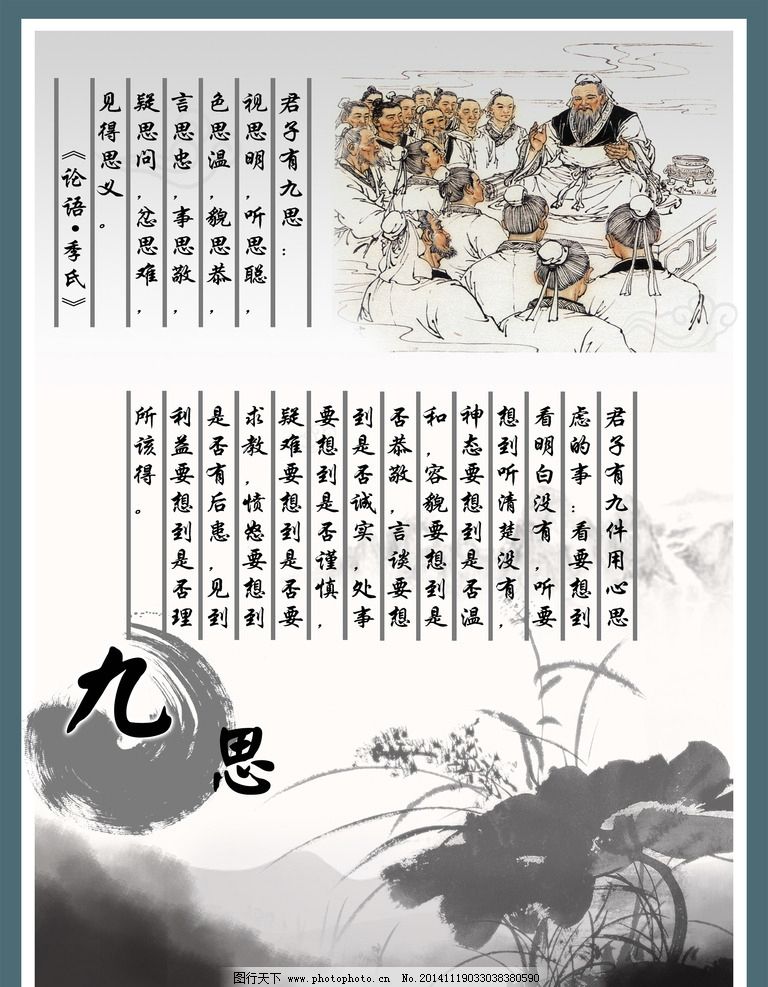 君子有九思：
视思明，听思聪，
色思温，貌思恭，
言思忠，事思敬，
疑思问，忿思难，
见得思义。
《论语·季氏》
君子有九件用心思
虑的事：看要想到
看明白没有，听要
想到听清楚没有，
神态要想到是否温
和，容貌要想到是
否恭敬，言谈要想
到是否诚实，处事
要想到是否谨慎，
疑难要想到是否要
求教，愤怒要想到
是否有后患，见到
利益要想到是否理
所该得。
九思
图行天下 www.photophoto.cn No.20141119033038380590